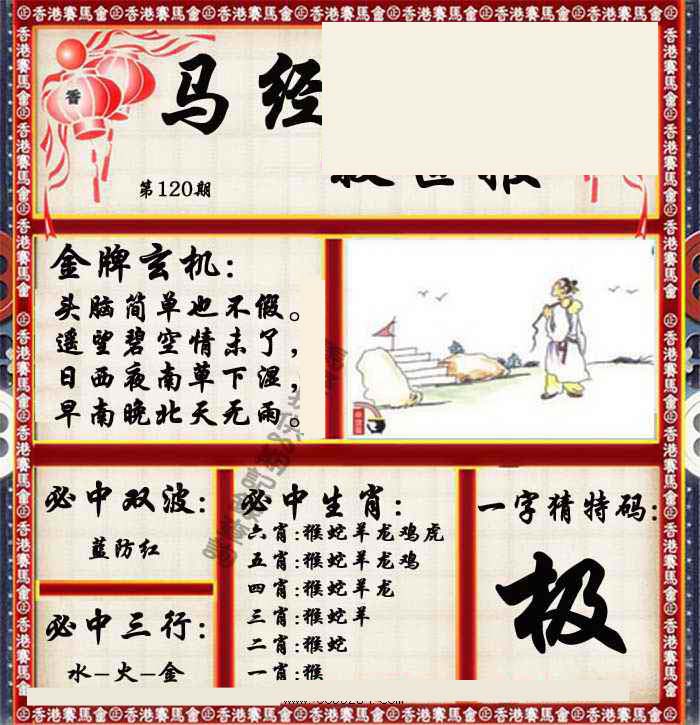 香港賽馬會
香
马经
第120期
金牌玄机:
头脑简单也不假。
遥望碧空情未了，
日西夜南草下湿，
早南晚北天无雨。
必中双波:
蓝防红
必中三行:
水-火-金
必中生肖:
六肖:猴蛇羊龙鸡虎
五肖:猴蛇羊龙鸡
四肖:猴蛇羊龙
三肖:猴蛇羊
二肖:猴蛇
一肖:猴
一字猜特码:
极